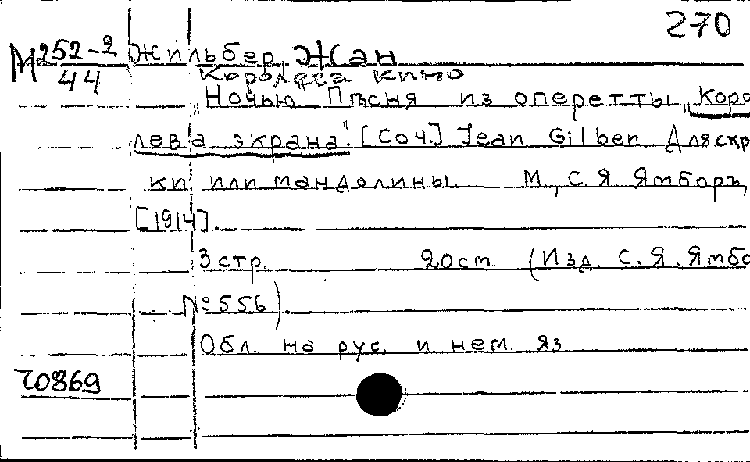 270
М 252-2 Жильбер, Жан
44 Королева кино
Ночью. Пѣсня из оперетты „Коро
лева экрана". [Соч.] Jean Gilber. Для скр
ки или мандолины. М., С. Я. Ямборъ,
[1914].
3 стр. 20 ст (Изд. С. Я. Ямбо
№ 556)
Обл. на рус. и нем. яз
70869